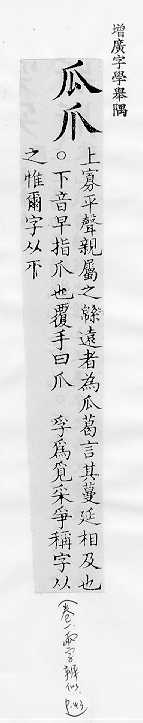 增廣字學舉隅
瓜爪
上寡平聲親屬之緜遠者為瓜葛言其蔓延相及也
○下音早指爪也覆手曰爪 孚爲覓采爭稱字从
之惟爾字从
(卷一,兩字辨似, P.43)